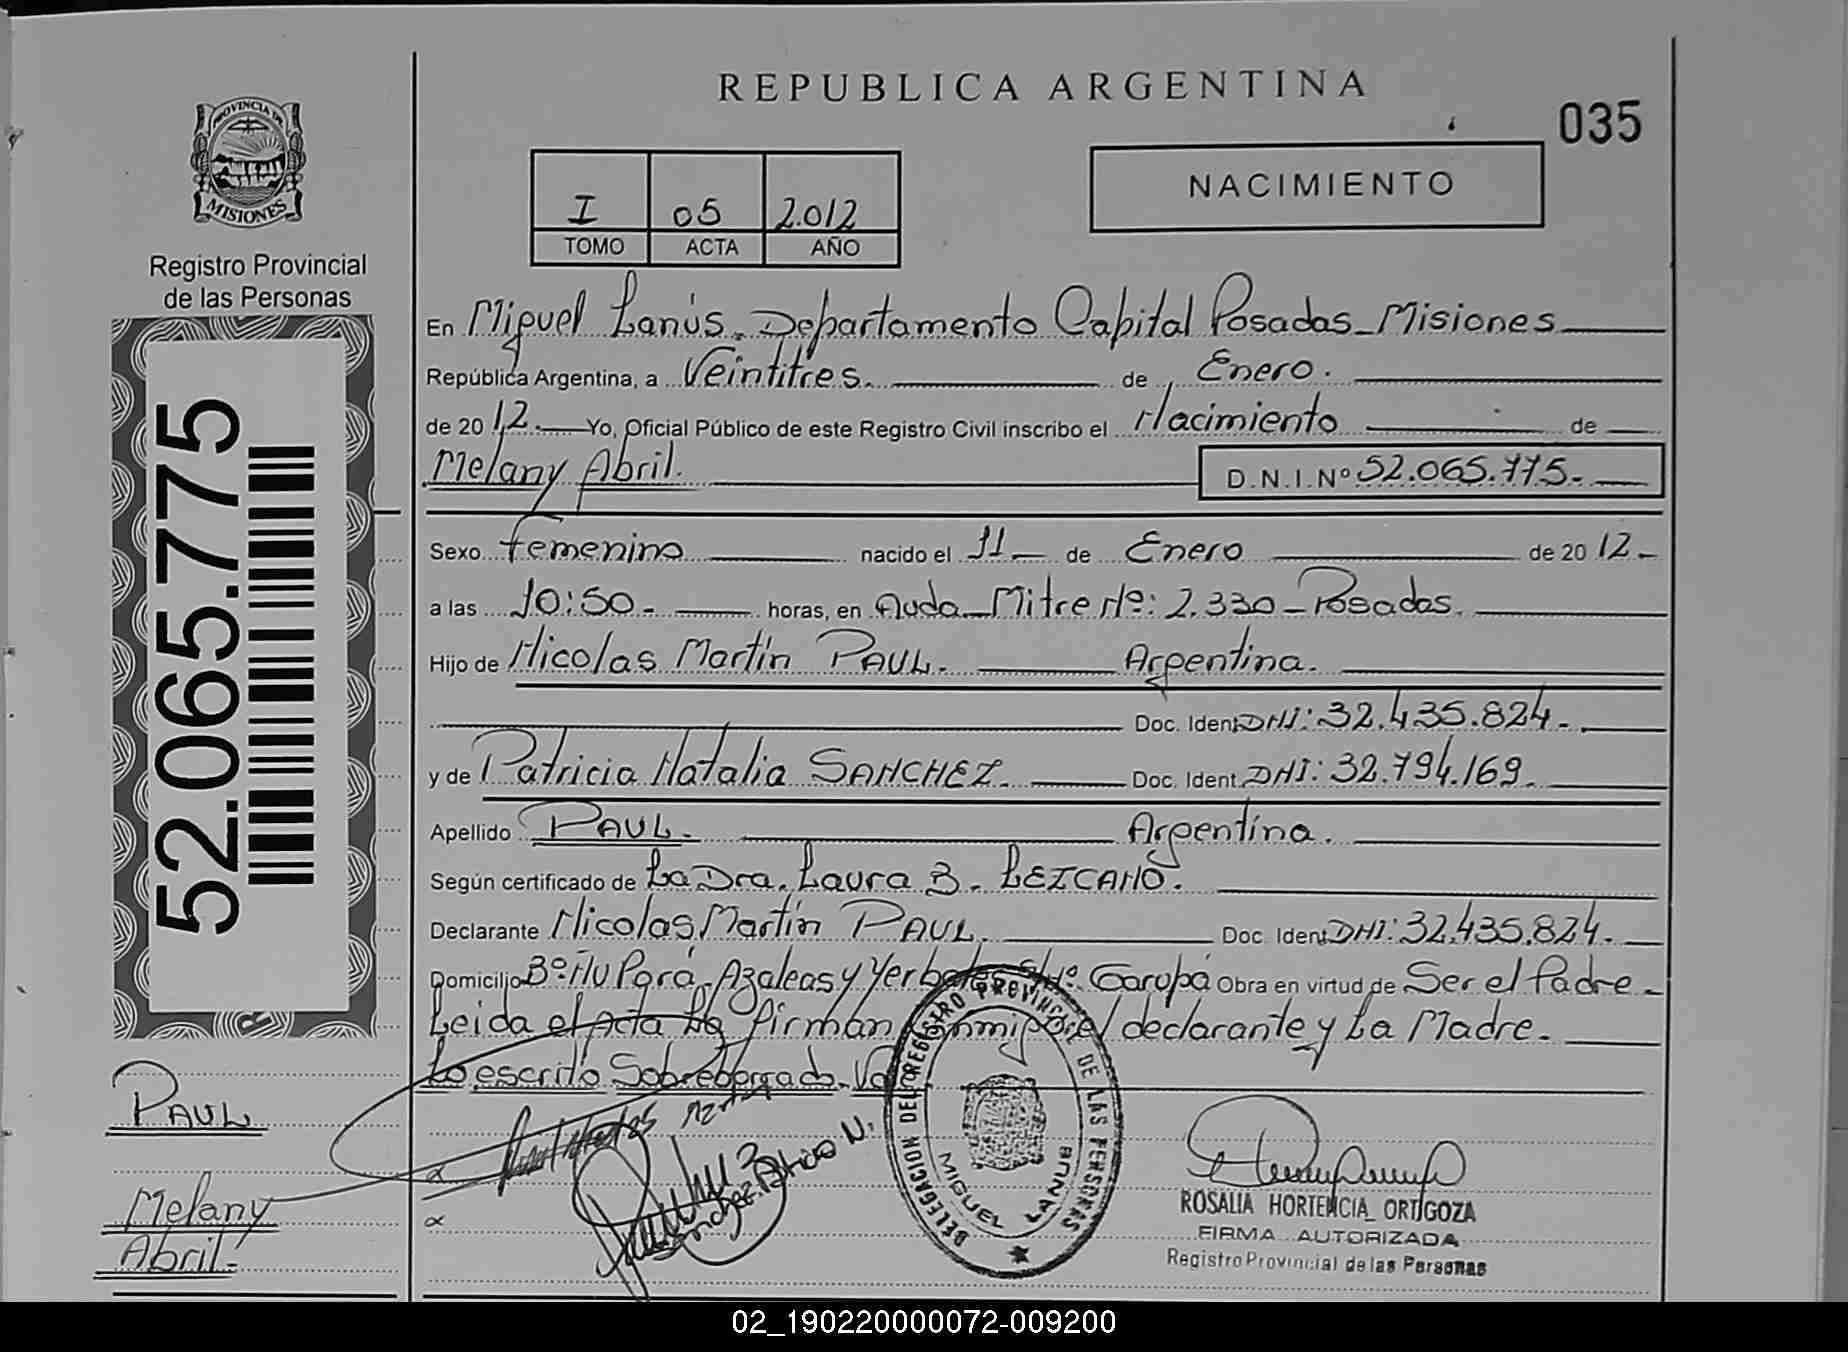 REPUBLICA ARGENTINA
035
PROVINCIA DE
MISIONES
Registro Provincial
de las Personas
I 05 2.012
TOMO ACTA AÑO
NACIMIENTO
52.065.775
En Miguel Lanús. Departamento Capital Posadas_Misiones
República Argentina, a Veintitres. de Enero.
de 2012. Yo, Oficial Público de este Registro Civil inscribo el Nacimiento de
Melany Abril. D.N.I.Nº 52.065.775.
Sexo femenino nacido el 11 de Enero de 2012
a las 10:50. horas, en Avda. Mitre Nº: 2.330 - Posadas.
Hijo de Nicolas Martín PAUL. Argentina.
Doc. Ident. DNI: 32.435.824.
y de Patricia Natalia SANCHEZ. Doc. Ident. DNI: 32.794.169.
Apellido PAUL. Argentina.
Según certificado de La Dra. Laura B. LEZCANO.
Declarante Nicolas Martín PAUL. Doc. Ident. DNI: 32.435.824.
Domicilio Bº Ñu Porá. Azaleas y Yerbales S/Nº. Garupá Obra en virtud de Ser el Padre.
Leida el Acta La firman el declarante y La Madre.
Lo escrito Sobreborrado.
PAUL
Melany
Abril.
Sanchez Patricia N.
DELEGACION DEL REGISTRO PROVINCIAL DE LAS PERSONAS
MIGUEL LANUS
ROSALIA HORTENCIA ORTIGOZA
FIRMA AUTORIZADA
Registro Provincial de las Personas
02_190220000072-009200